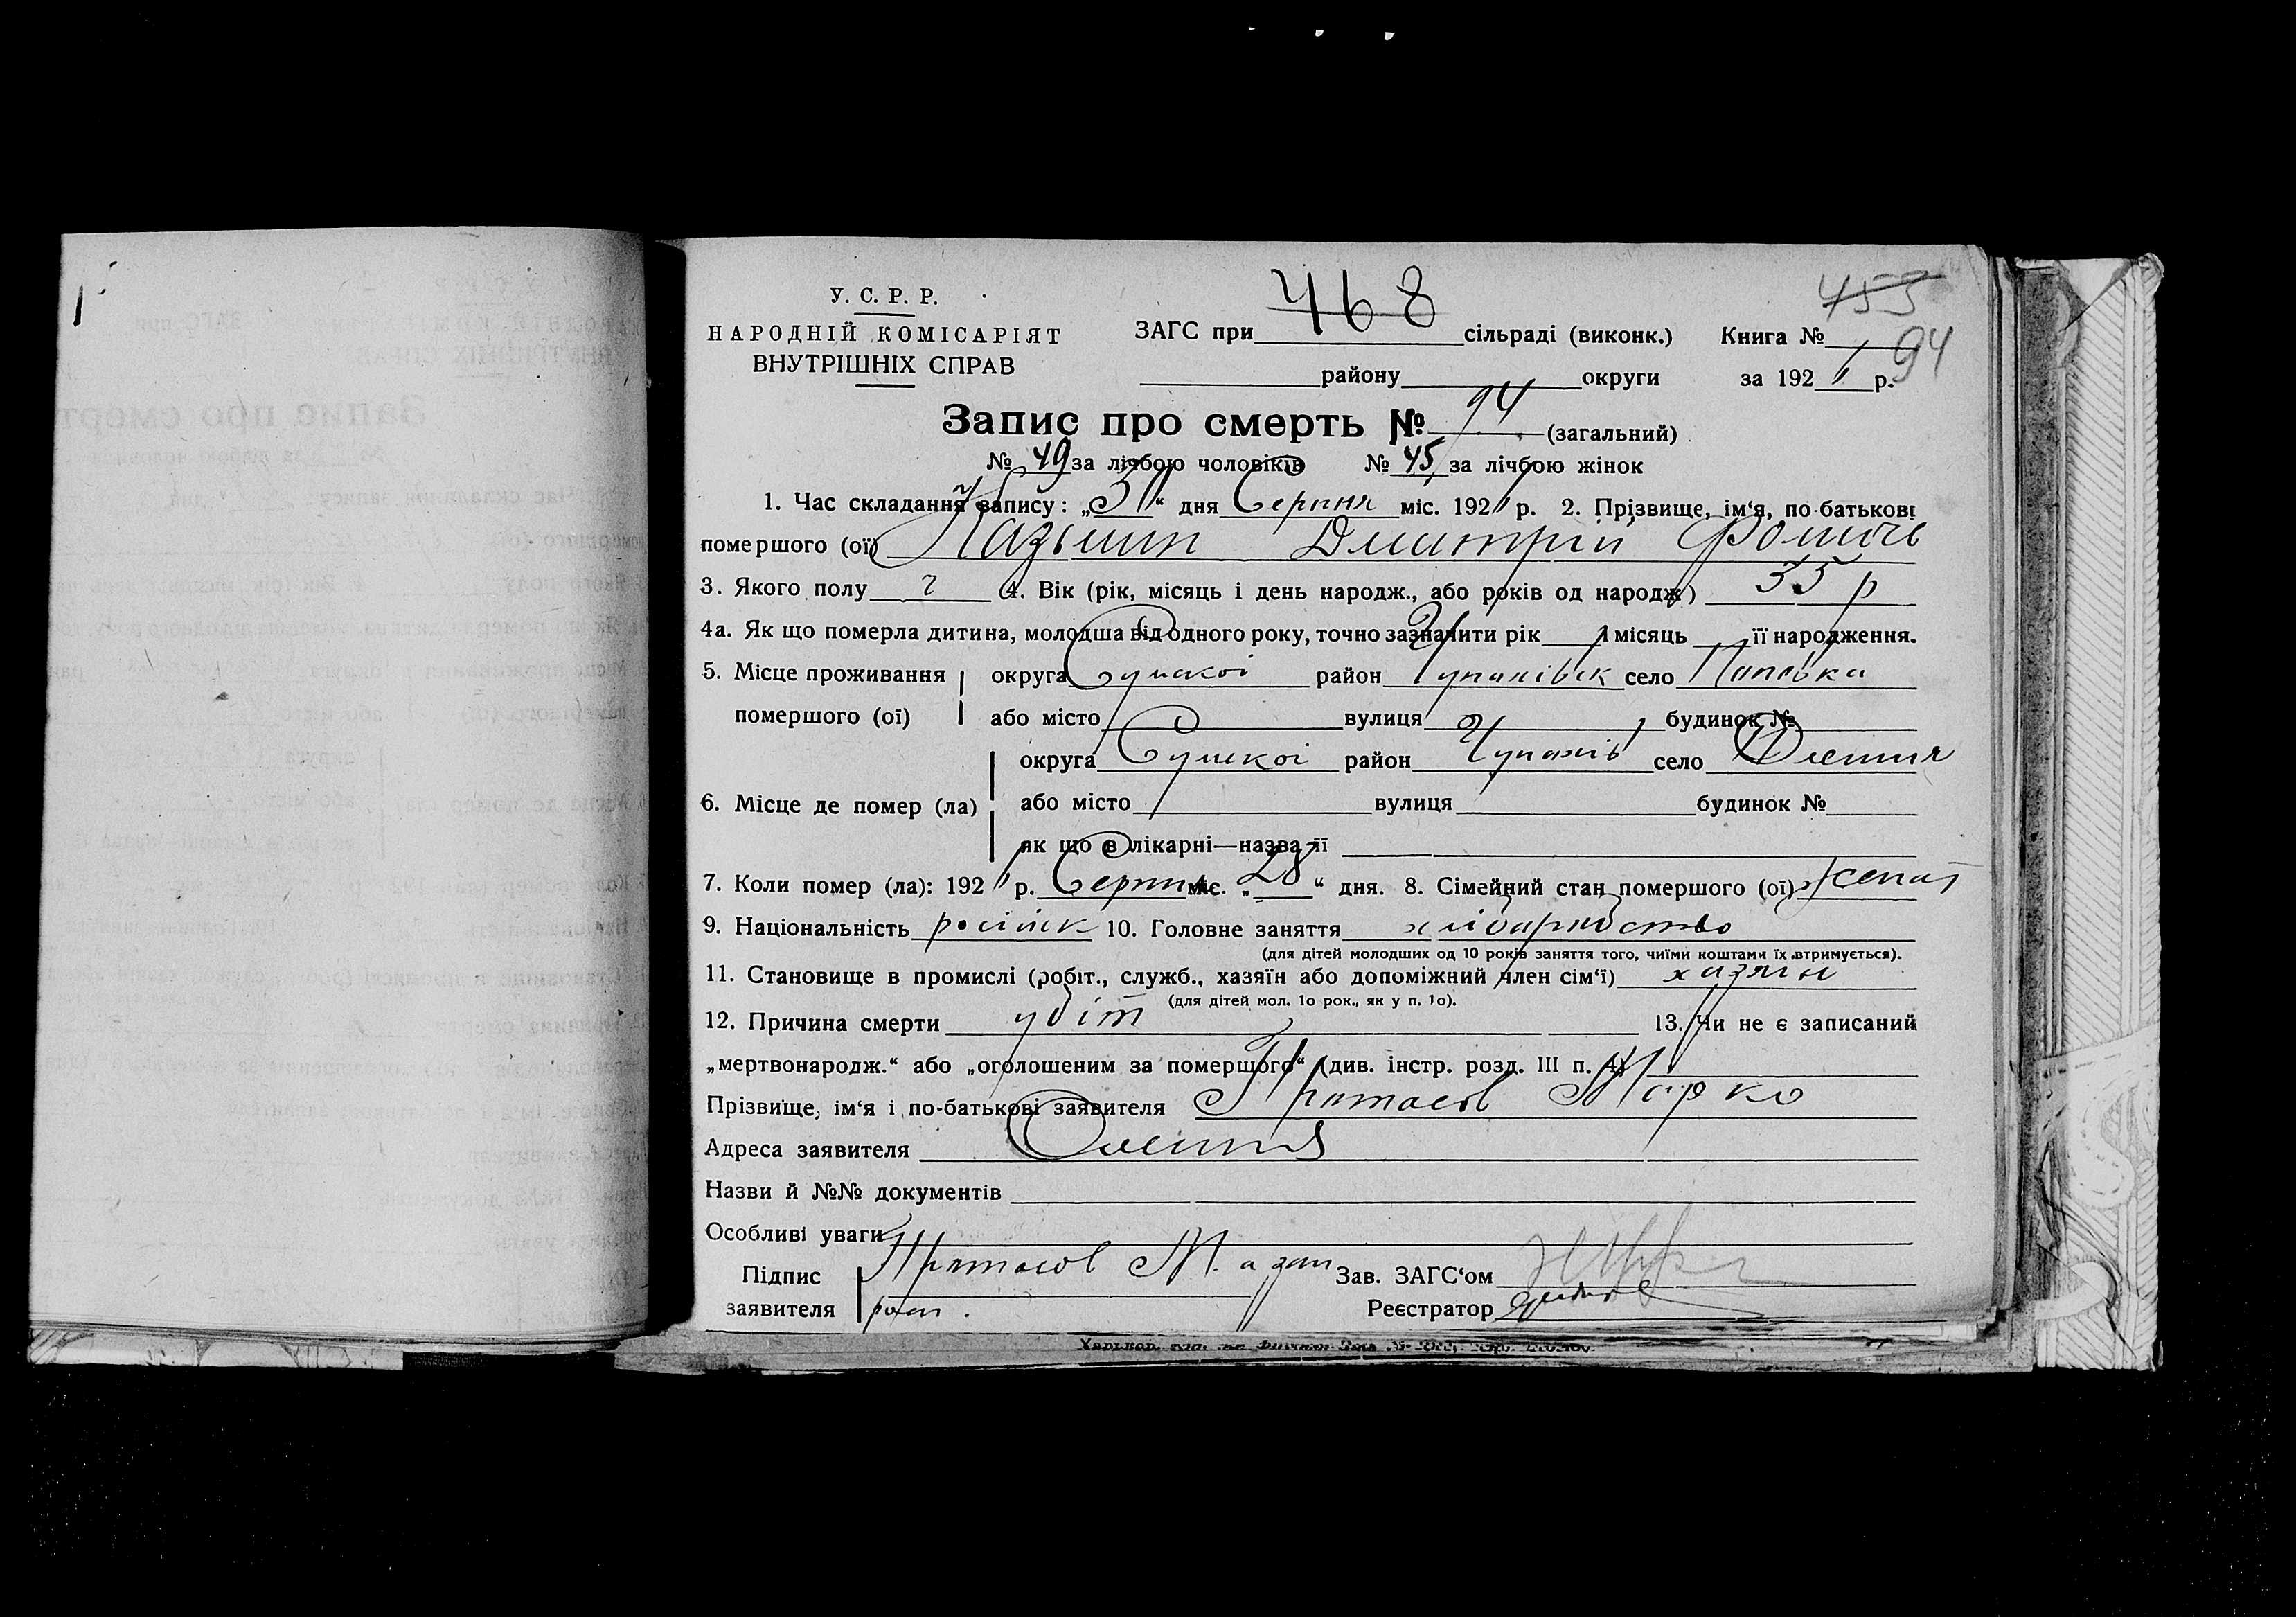 У. С. Р. Р.
НАРОДНІЙ КОМІСАРІЯТ
ВНУТРІШНІХ СПРАВ
468
ЗАГС при сільраді (виконк.)
району округи
453
Книга № 94
за 192 р.
Запис про смерть № 94 (загальний)
№ 49 за лічбою чоловіків № 45 за лічбою жінок
1. Час складання запису: „31“ дня Серпня міс. 192 р. 2. Прізвище, ім‘я, по-батькові
помершого (ої) Дмитрій Фомичь
3. Якого полу ч 4. Вік (рік, місяць і день народж., або років од народж) 35 р
4а. Як що померла дитина, молодша від одного року, точно зазначити рік і місяць її народження.
5. Місце проживання округа Сумскої район село Попівка
помершого (ої) або місто вулиця будинок №
округа Сумскої район село
6. Місце де помер (ла) або місто вулиця будинок №
як що в лікарні—назва її
7. Коли помер (ла): 192 р. Серпня міс. „28“ дня. 8. Сімейний стан помершого (ої) женат
9. Національність 10. Головне заняття хліборобство
(для дітей молодших од 10 років заняття того, чиїми коштами їх втримується).
11. Становище в промислі (робіт., служб., хазяїн або допоміжний член сім‘ї) хазяин
(для дітей мол. 1о рок., як у п. 1о).
12. Причина смерти убіт 13. Чи не є записаний
„мертвонародж.“ або „оголошеним за помершого“ (див. інстр. розд. III п. 4)
Прізвище, ім‘я і по-батькові заявителя Протасов Марко
Адреса заявителя
Назви й №№ документів
Особливі уваги
Підпис Протасов М. Зав. ЗАГС‘ом
заявителя Реєстратор